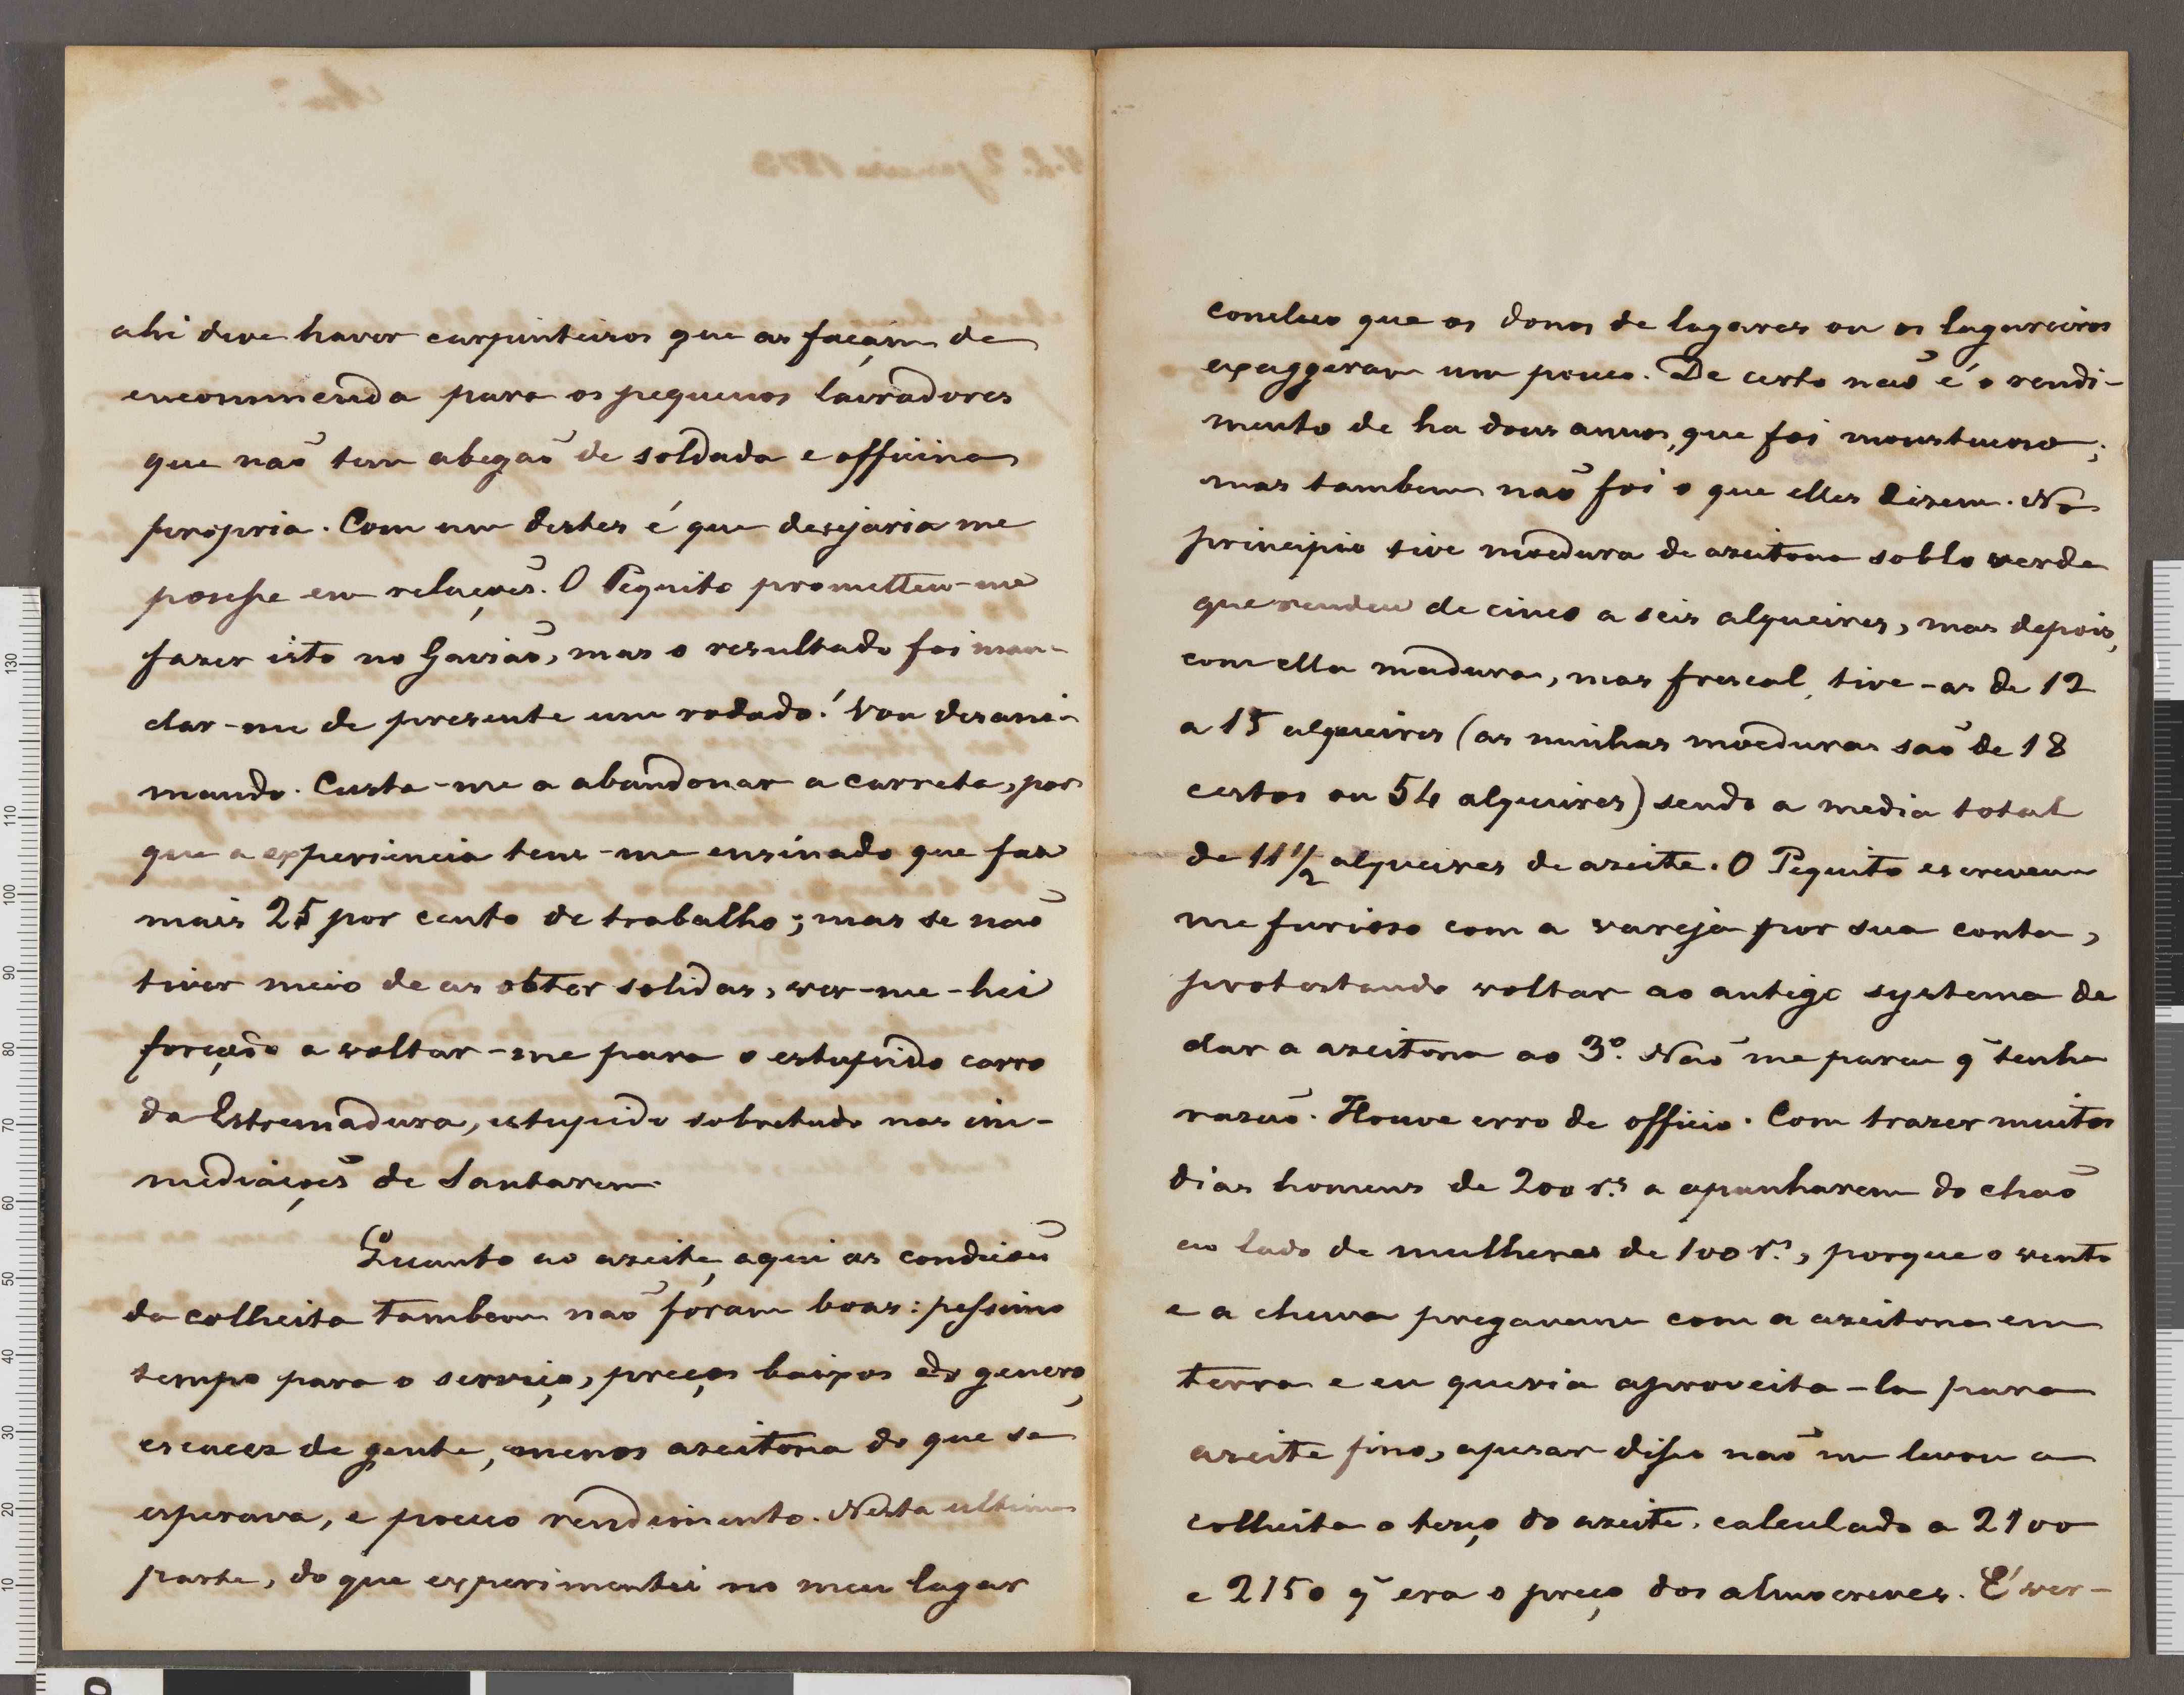 ahi deve haver carpinteiros que as façam de
encommenda para os pequenos lavradores
que não tem abegão de soldada e officina
propria. Com um destes é que desejaria me
posesse em relações. O Pequito prometteu-me
fazer isto no Gavião, mas o resultado foi man-
dar-me de presente um rodado! Vou desani-
mando. Custa-me a abandonar a carreta, por
que a experiencia tem-me ensinado que faz
mais 25 por cento de trabalho; mas se não
tiver meio de as obter solidas, ver-me-hei
forçado a voltar-me para o estupido carro
da Estremadura, estupido sobretudo nas im-
mediações de Santarem.
Quanto ao azeite, aqui as condições
da colheita tambem não foram boas: pessimo
tempo para o serviço, preços baixos do genero,
escacez de gente, menos azeitona do que se
esperava, e pouco rendimento. Nesta ultima
parte, do que experimentei no meu lagar
concluo que os donos de lagares ou os lagareiros
exaggeram um pouco. De certo não é o rendi-
mento de ha dous annos, que foi monstuoso;
mas tambem não foi o que elles dizem. No
principio tive moedura de azeitona soblo verde
que rendeu de cinco a seis alqueires, mas depois,
com ella madura, mas frescal, tive-as de 12
a 15 alqueires (as minhas moeduras são de 18
cestos ou 54 alqueires) sendo a media total
de 11 1/2 alqueires de azeite. O Pequito escreveu
me furioso com a vareja por sua conta,
protestando voltar ao antigo systema de
dar a azeitona ao 3º. Não me parece q̃ tenha
razão. Houve erro de officio. Com trazer muitos
dias homens de 200 r.s a apanharem do chão
ao lado de mulheres de 100 r.s, porque o vento
e a chuva pregavam com a azeitona em
terra e eu queria aproveita-la para
azeite fino, apezar disso não me levou a
colheita o terço do azeite, calculado a 2100
e 2150 q̃ era o preço dos almocreves. É ver-